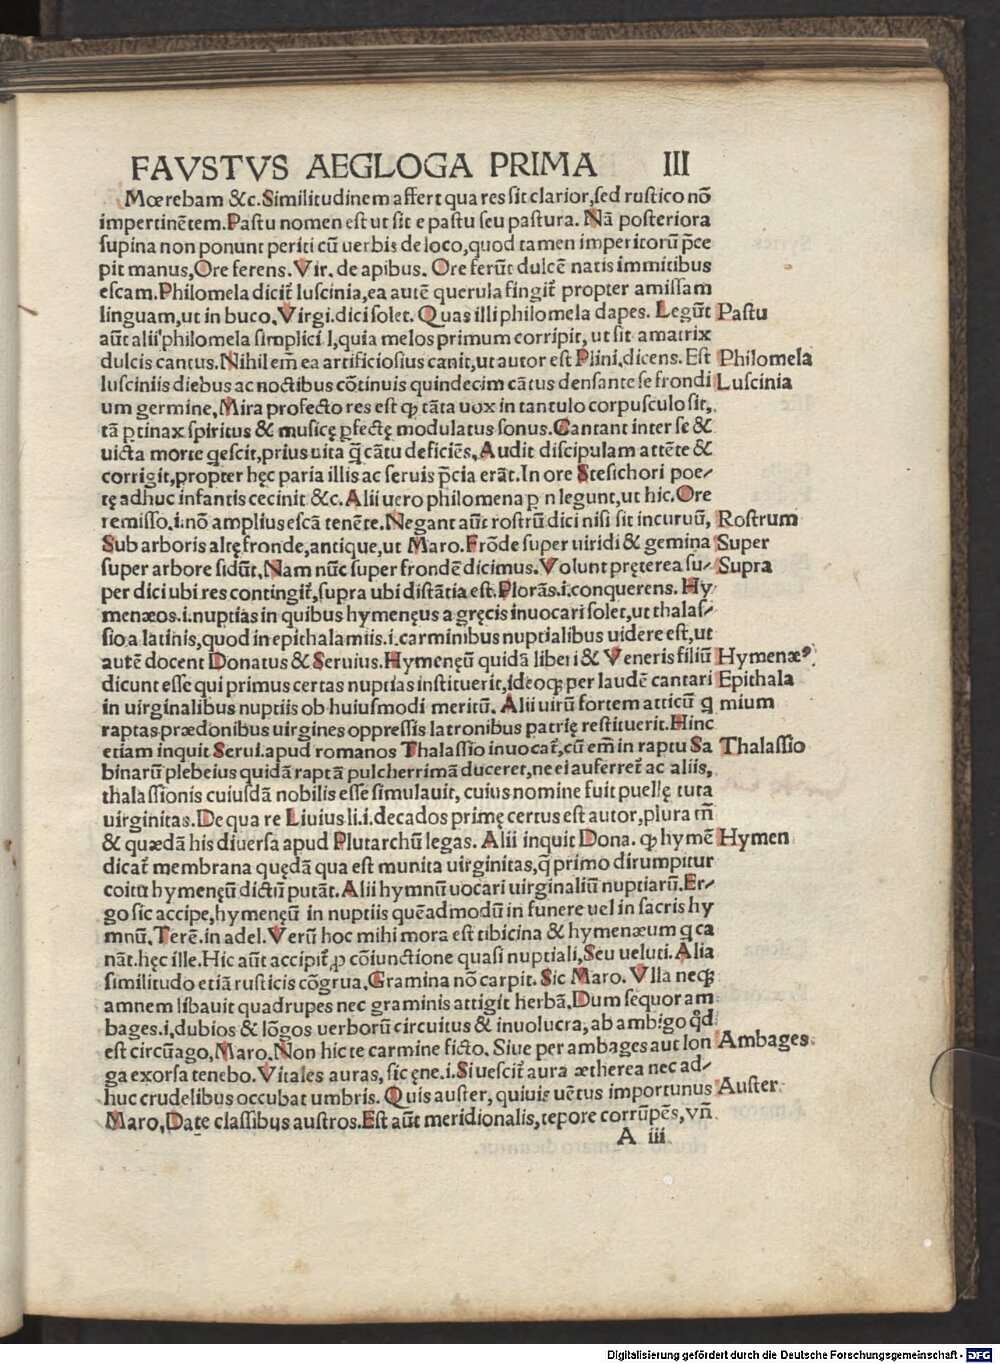 FAVSTVS AEGLOGA PRIMA III
Mœrebam &c. Similitudinem affert qua res sit clarior, sed rustico nõ
impertinẽtem. Pastu nomen est ut sit e pastu seu pastura. Nã posteriora
supina non ponunt periti cũ uerbis de loco, quod tamen imperitorũ p̃ce
pit manus, Ore ferens. Vir. de apibus. Ore ferũt dulcẽ natis immitibus
escam. Philomela dicit̃ luscinia, ea autẽ querula fingit̃ propter amissam
linguam, ut in buco. Virgi. dici solet. Quas illi philomela dapes. Legũt Pastu
aũt alii philomela simplici l, quia melos primum corripit, ut sit amatrix
dulcis cantus. Nihil em̃ ea artificiosius canit, ut autor est Plini. dicens. Est Philomela
lusciniis diebus ac noctibus cõtinuis quindecim cãtus densante se frondi Luscinia
um germine, Mira profecto res est ꝙ tãta uox in tantulo corpusculo sit,
tã ꝑtinax spiritus & musicę ꝑfectę modulatus sonus. Cantant inter se &
uicta morte q̃escit, prius uita q̃ cãtu deficiẽs, Audit discipulam attẽte &
corrigit, propter hęc paria illis ac seruis p̃cia erãt. In ore Stesichori poe-
tę adhuc infantis cecinit &c. Alii uero philomena p n legunt, ut hic. Ore
remisso. i. nõ amplius escã tenẽte. Negant aũt rostrũ dici nisi sit incuruũ, Rostrum
Sub arboris altę fronde, antique, ut Maro. Frõde super uiridi & gemina Super
super arbore sidũt, Nam nũc super frondẽ dicimus. Volunt pręterea su- Supra
per dici ubi res contingit̃, supra ubi distãtia est. Plorãs. i. conquerens. Hy
menæos. i. nuptias in quibus hymenęus a gręcis inuocari solet, ut thalas-
sio a latinis, quod in epithalamiis. i. carminibus nuptialibus uidere est, ut
autẽ docent Donatus & Seruius. Hymenęũ quidã liberi & Veneris filiũ Hymenæꝰ
dicunt esse qui primus certas nuptias instituerit, ideoꝗ per laudẽ cantari Epithala
in uirginalibus nuptiis ob huiusmodi meritũ. Alii uirũ fortem atticũ q mium
raptas prædonibus uirgines oppressis latronibus patrię restituerit. Hinc
etiam inquit Serui. apud romanos Thalassio inuocat̃, cũ em̃ in raptu Sa Thalassio
binarũ plebeius quidã raptã pulcherrimã duceret, ne ei auferret̃ ac aliis,
thalassionis cuiusdã nobilis esse simulauit, cuius nomine fuit puellę tuta
uirginitas. De qua re Liuius li. i. decados primę certus est autor, plura tñ
& quædã his diuersa apud Plutarchũ legas. Alii inquit Dona. ꝙ hymẽ Hymen
dicat̃ membrana quędã qua est munita uirginitas, q̃ primo dirumpitur
coitu hymenęũ dictũ putãt. Alii hymnũ uocari uirginaliũ nuptiarũ. Er-
go sic accipe, hymenęũ in nuptiis quẽadmodũ in funere uel in sacris hy
mnũ. Terẽ. in adel. Verũ hoc mihi mora est tibicina & hymenæum q ca
nãt. hęc ille. Hic aũt accipit̃ ꝓ cõiunctione quasi nuptiali, Seu ueluti. Alia
similitudo etiã rusticis cõgrua, Gramina nõ carpit. Sic Maro. Vlla neqꝫ
amnem libauit quadrupes nec graminis attigit herbã. Dum sequor am
bages. i. dubios & lõgos uerborũ circuitus & inuolucra, ab ambigo qd̃
est circũago, Maro. Non hic te carmine ficto. Siue per ambages aut lon Ambages
ga exorsa tenebo. Vitales auras, sic ęne. i. Si uescit̃ aura ætherea nec ad-
huc crudelibus occubat umbris. Quis auster, quiuis uẽtus importunus Auster
Maro, Date classibus austros. Est aũt meridionalis, tepore corrũpẽs, vñ
A iii
Digitalisierung gefördert durch die Deutsche Forschungsgemeinschaft - DFG